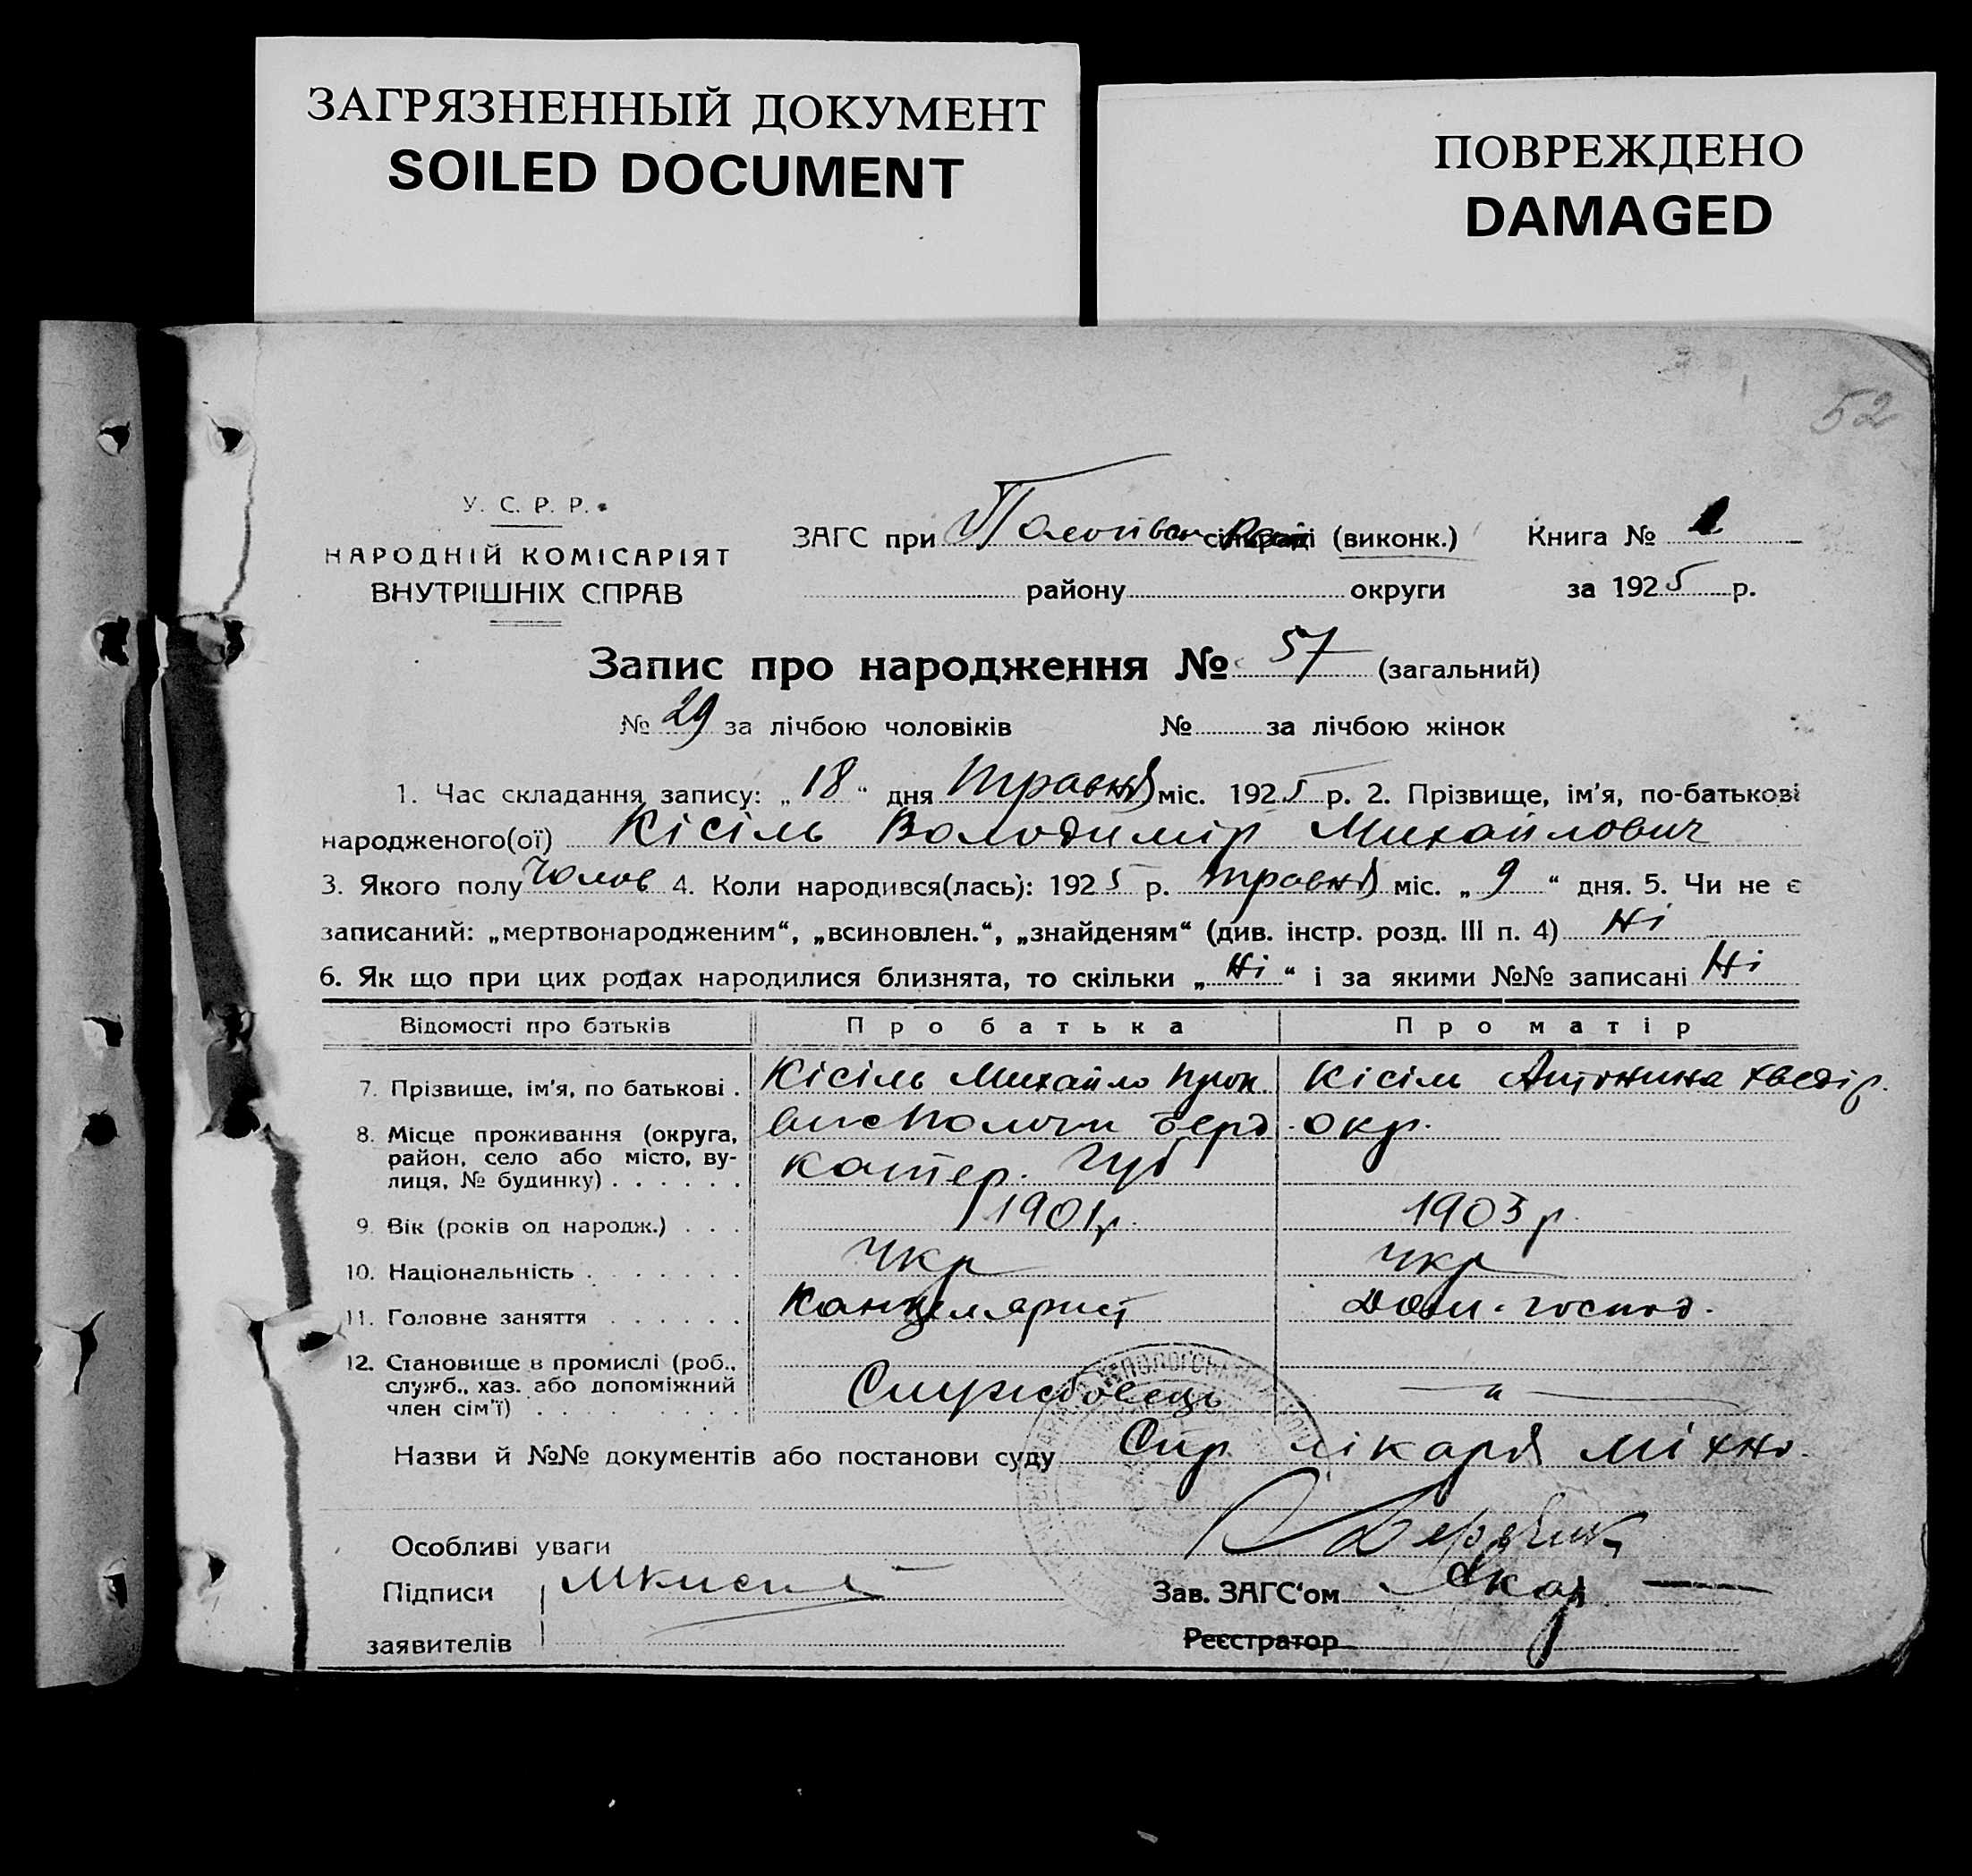 ЗАГРЯЗНЕННЫЙ ДОКУМЕНТ
SOILED DOCUMENT
ПОВРЕЖДЕНО
DAMAGED
52
У. С. Р. Р.
НАРОДНІЙ КОМІСАРІЯТ
ВНУТРІШНІХ СПРАВ
ЗАГС при (виконк.) Книга № 1
району округи за 1925 р.
Запис про народження № 57 (загальний)
№ 29 за лічбою чоловіків № за лічбою жінок
1. Час складання запису: „18“ дня травня міс. 1925 р. 2. Прізвище, ім'я, по-батькові
народженого(ої) Кісіль Володимір Михайлович
3. Якого полу Чолов 4. Коли народився(лась): 1925 р. травня міс. „9“ дня. 5. Чи не є
записаний: „мертвонародженим“, „всиновлен.“, „знайденям“ (див. інстр. розд. III п. 4) Ні
6. Як що при цих родах народилися близнята, то скільки „Ні“ і за якими №№ записані Ні
Відомості про батьків Про батька Про матір
7. Прізвище, ім'я, по батькові . Кісіль Михайло Прок. Кісіль Антонина Хведір.
8. Місце проживання (округа, район, село або місто, вулиця, № будинку) Берд. окр.
катер. Губ
9. Вік (років од народж.) . . . 1901р. 1903р.
10. Національність . Укр Укр
11. Головне заняття Канцелярист Дом. господ.
12. Становище в промислі (роб., служб., хаз. або допоміжний член сім'ї) Службовець — " —
Назви й №№ документів або постанови суду Спр лікаря Міхно.
Особливі уваги
Підписи МКисіль Зав. ЗАГС'ом
заявителів Реєстратор